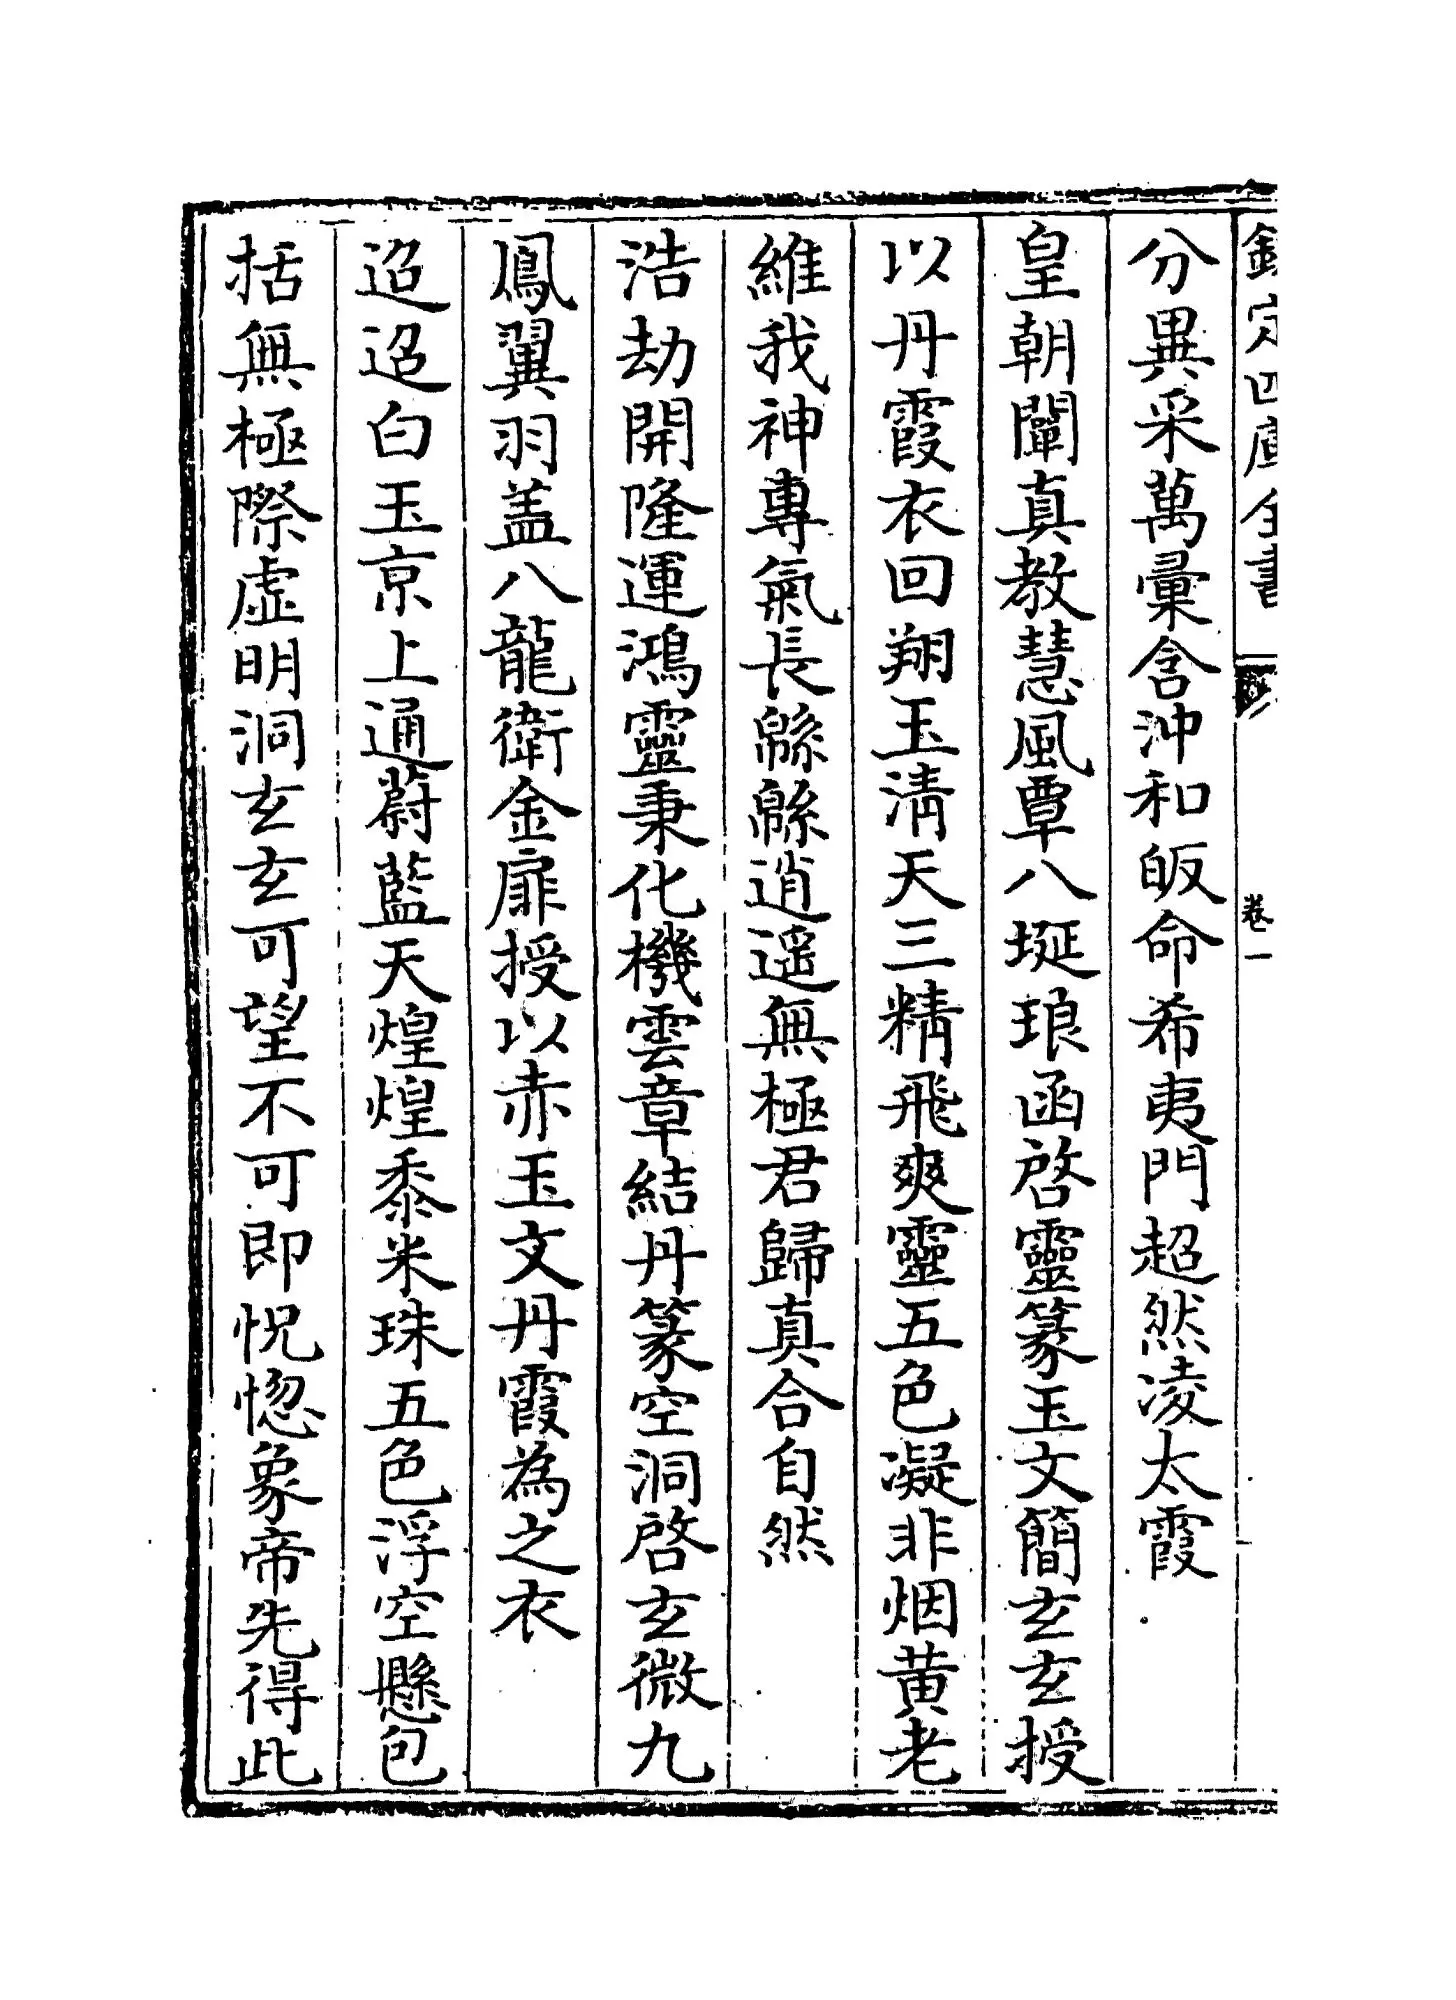 欽定四庫全書
卷一
分異采萬彙含沖和皈命希夷門超然凌太霞
皇朝闡真教慧風覃八埏琅函啓靈篆玉文簡玄玄授
以丹霞衣回翔玉清天三精飛爽靈五色凝非烟黄老
維我神專氣長緜緜逍遥無極君歸真合自然
浩劫開隆運鴻靈秉化機雲章結丹篆空洞啓玄微九
鳳翼羽盖八龍衛金扉授以赤玉文丹霞為之衣
迢迢白玉京上通蔚藍天煌煌黍米珠五色浮空懸包
括無極際虚明洞玄玄可望不可即怳惚象帝先得此